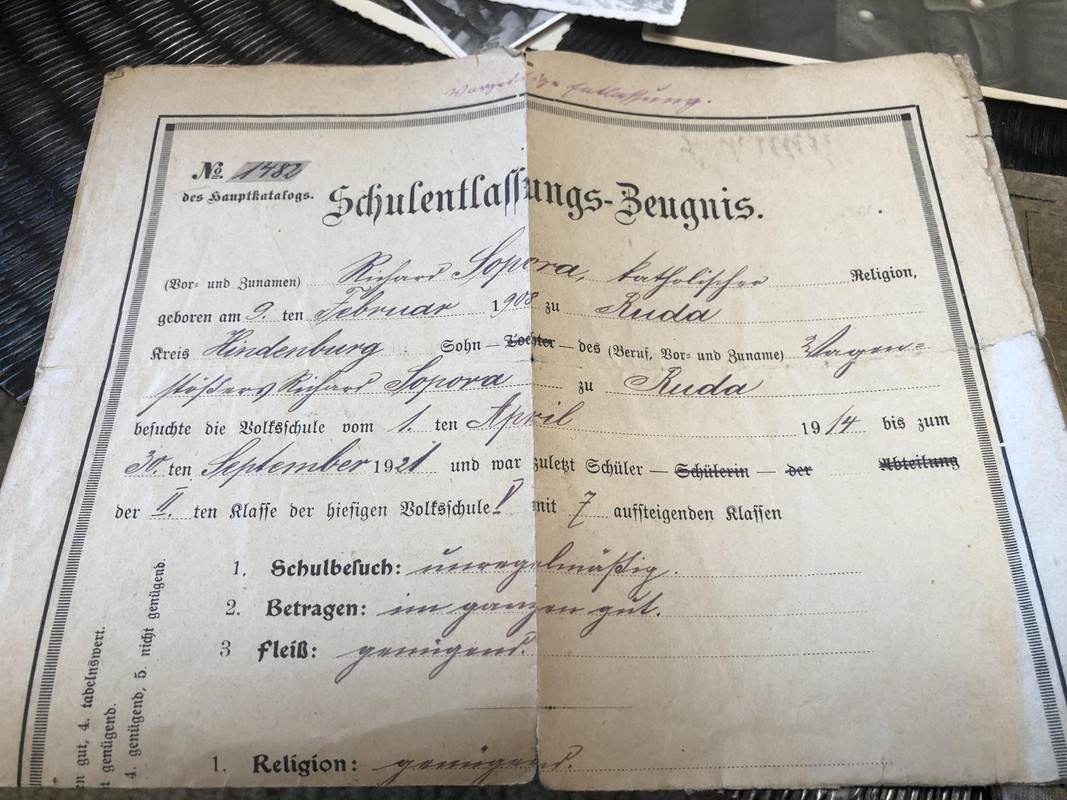 Vorzeitige Entlassung.
No 1482
des Hauptkatalogs.
Schulentlassungs-Zeugnis.
(Vor- und Zunamen) Richard Sopora, katholischer Religion,
geboren am 9. ten Februar 1908 zu Ruda
Kreis Hindenburg Sohn — Tochter — des (Beruf, Vor- und Zuname) Wagen=
stößers Richard Sopora zu Ruda
besuchte die Volksschule vom 1. ten April 1914 bis zum
30. ten September 1921 und war zuletzt Schüler — Schülerin — der Abteilung
der II. ten Klasse der hiesigen Volksschule V mit 7 aufsteigenden Klassen
1. Schulbesuch: unregelmäßig.
2. Betragen: im ganzen gut.
3 Fleiß: genügend.
1. Religion: genügend.
en gut, 4. tadelnswert.
t genügend.
4. genügend, 5. nicht genügend.